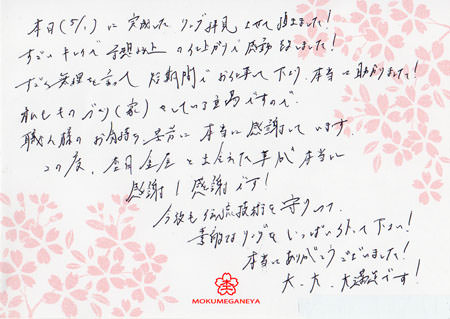 本日(5/1)に完成したリング拝見させて頂きました!
すごいキレイで予想以上の仕上がりで感動致しました!
すごく無理を言って短期間でお仕事して下さり、本当に助かりました!
私ももの づくり(家)をしている立場ですので、
職人様のお気持ち 本当に感謝しています。
この度、杢目金屋と出会えた事が本当に
感謝!感謝です!
今後も伝統技術を守りつつ、
素敵なリングをいっぱい 下さい!
本当にありがとうございました!
大、大、大満足です!
MOKUMEGANEYA